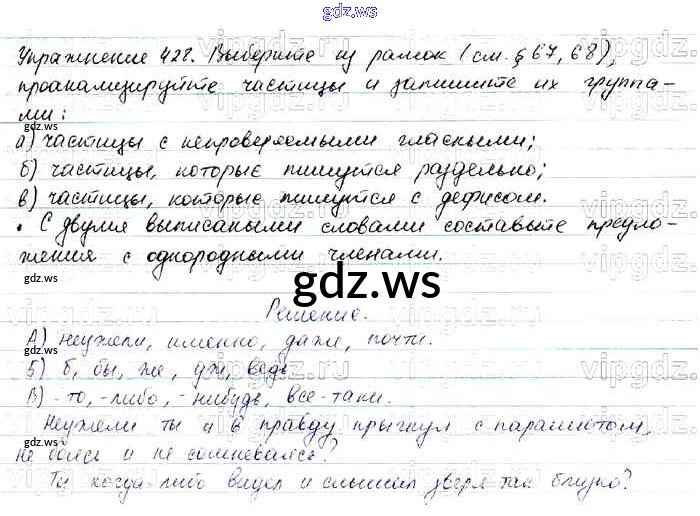 gdz.ws
Упражнение 428. Выберите из рамок (см. § 67, 68),
проанализируйте частицы и запишите их группа-
ми:
а) частицы с непроверяемыми гласными;
б) частицы, которые пишутся раздельно;
в) частицы, которые пишутся с дефисом.
• С двумя выписаными словами составьте предло-
жения с однородными членами.
gdz.ws
Решение.
А) неужели, именно, даже, почти.
Б) б, бы, же, уж, ведь
В) -то, -либо, -нибудь, все-таки.
Неужели ты и в правду прыгнул с парашютом,
не боясь и не сомневаясь?
Ты когда-либо видел и слышал зверя так близко?